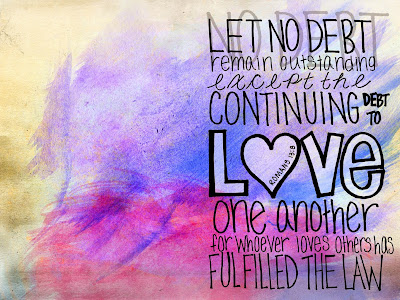 NO DEBT
LET NO DEBT
remain outstanding
except the
CONTINUING DEBT TO
LOVE
ROMANS 13:8
one another
for whoever loves others has
FULFILLED THE LAW